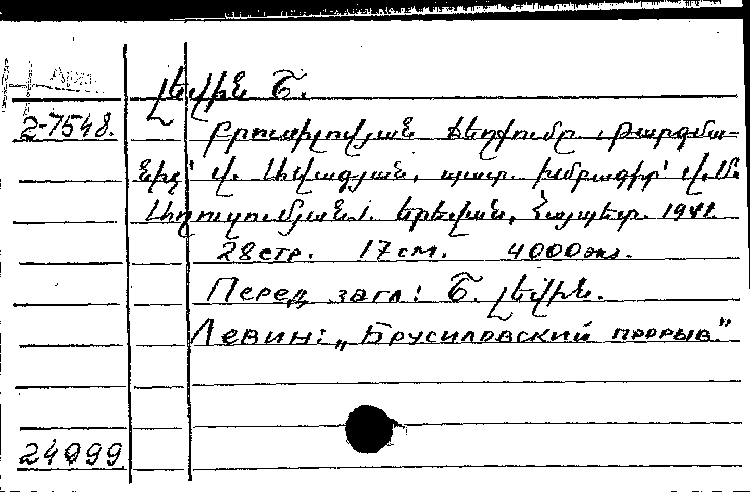 Арм.
Լևին Շ.
2-7548. Բրուսիլովյան ճեղքումը. Թարգմա-
նիչ՝ Վ. Ավագյան, պատ. խմբագիր՝ Վ. Մ.
Երևան, Հայպետ. 1941.
28 стр. 17 см. 4000 экз.
Перед загл: Շ. Լևին.
Левин: „Брусиловский прорыв."
24999